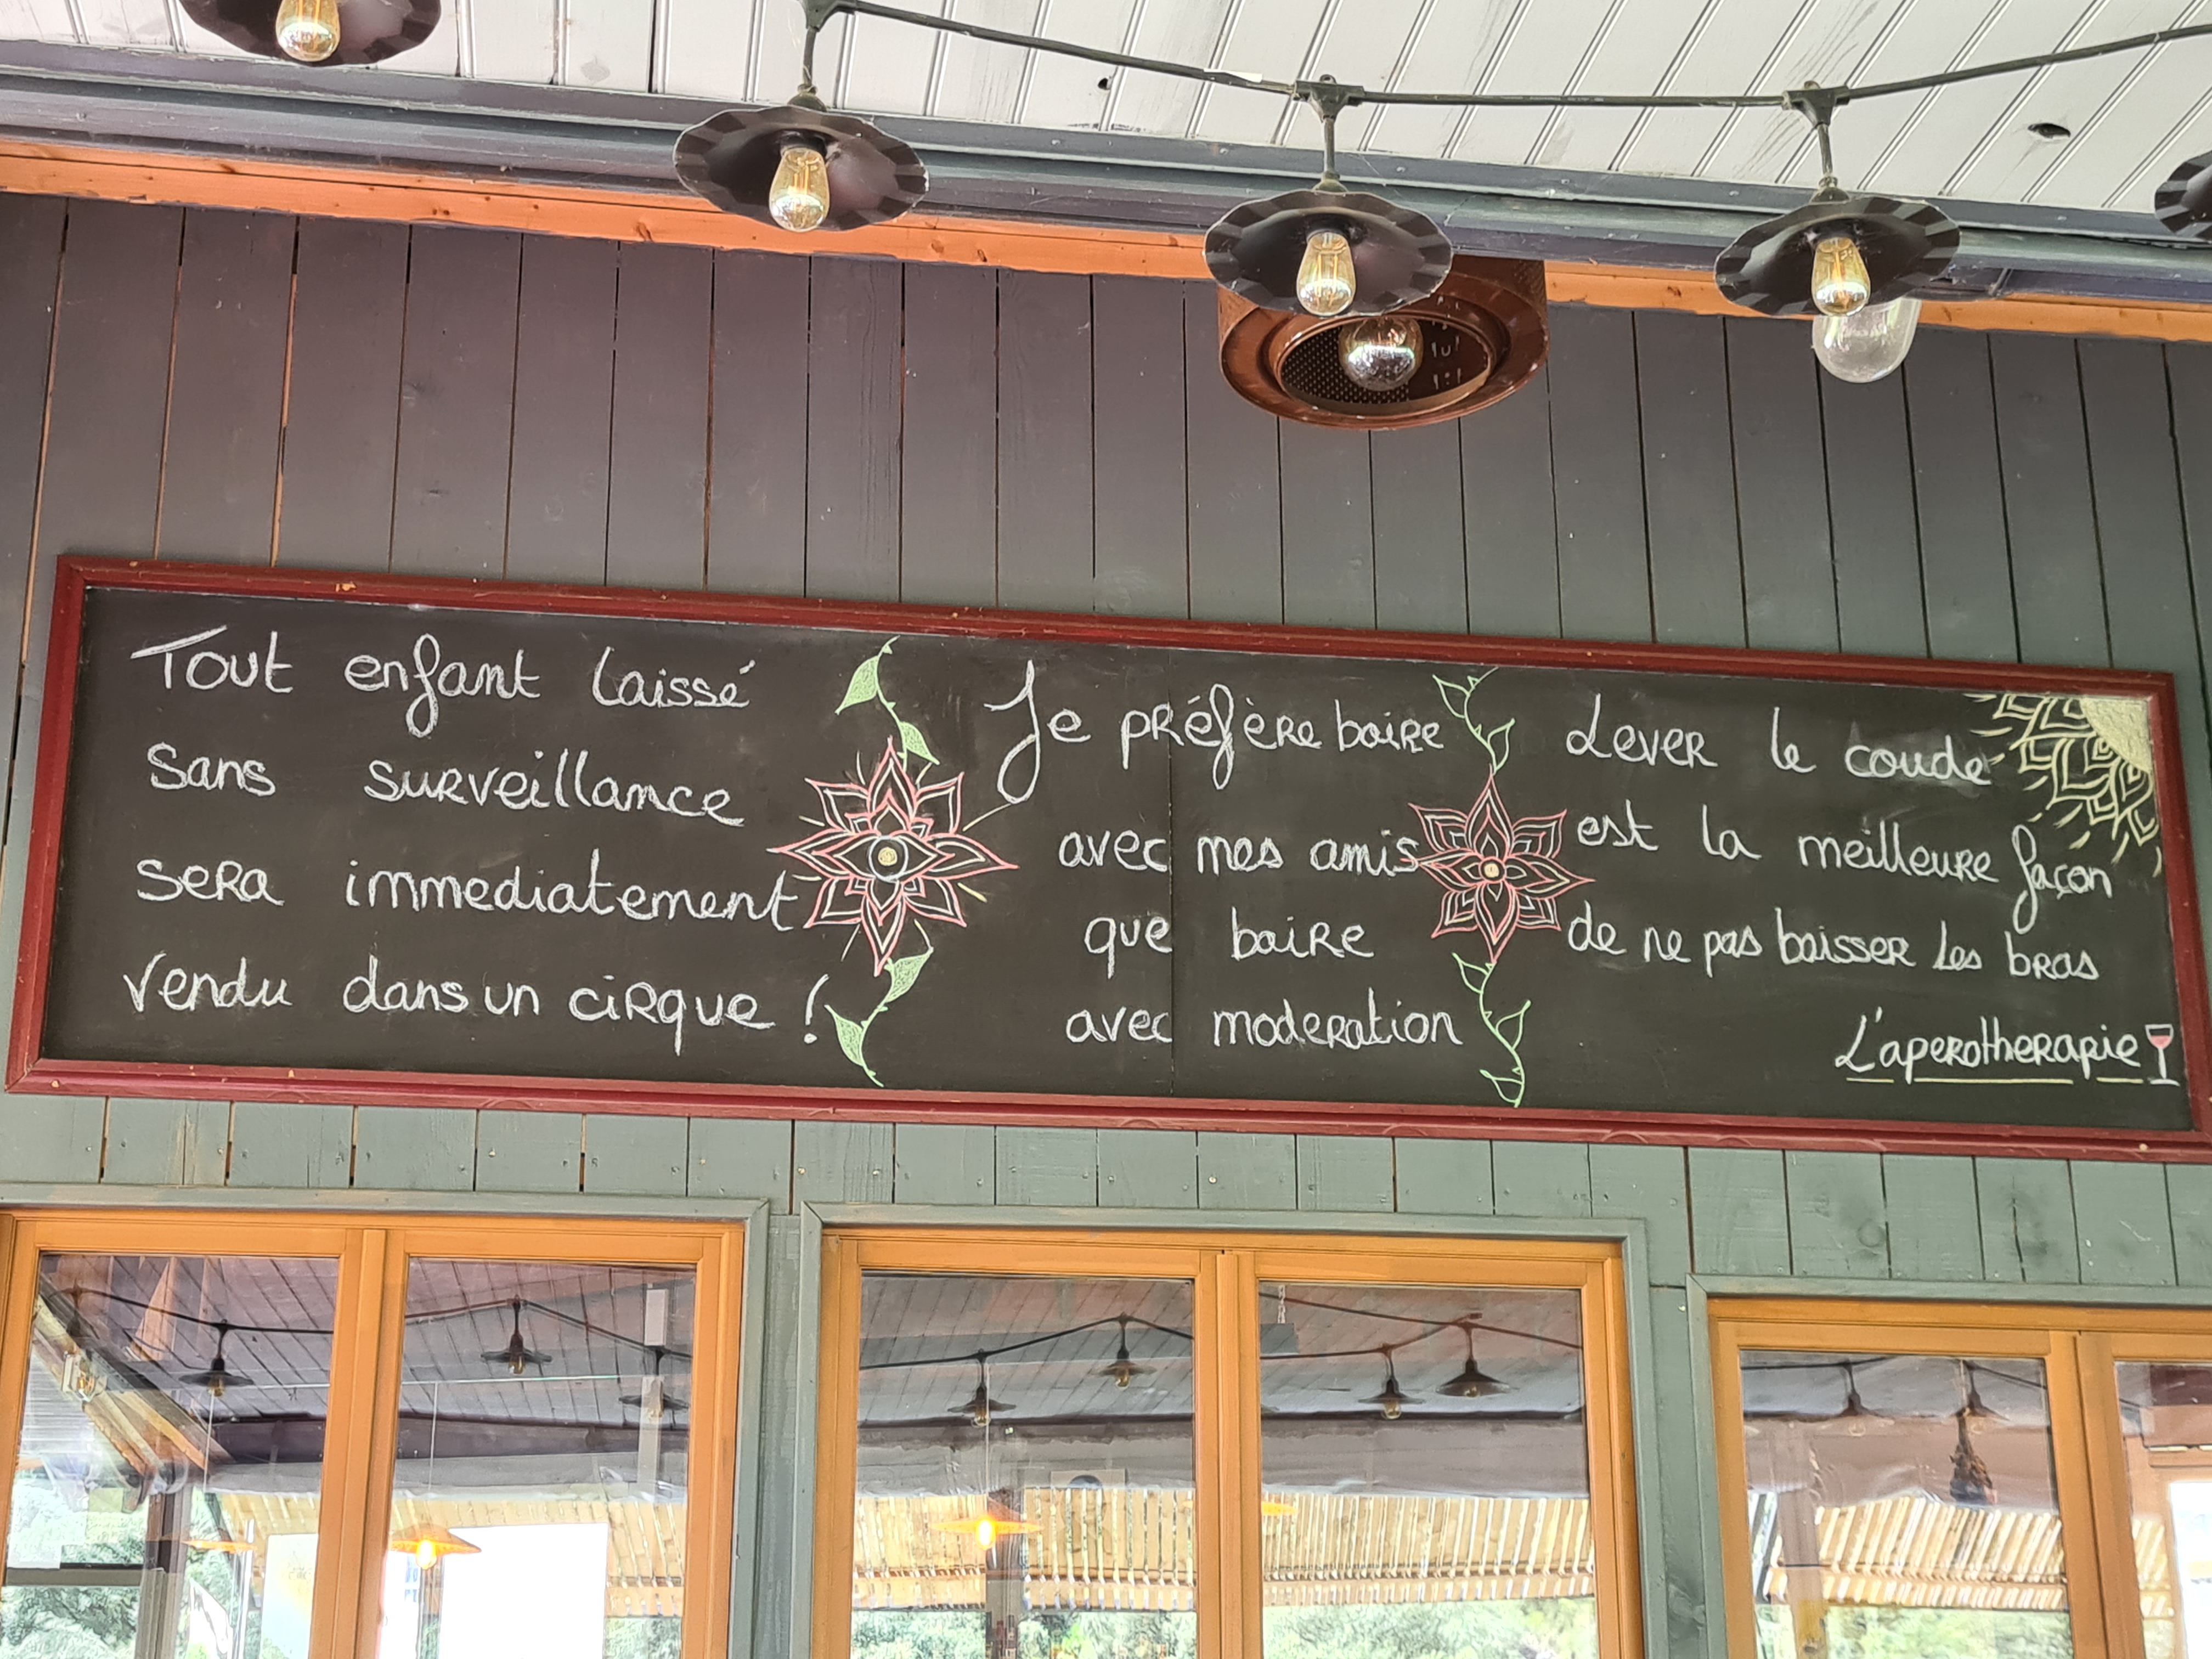 Tout enfant laissé
sans surveillance
sera immediatement
vendu dans un cirque !
Je préfère boire
avec mes amis
que boire
avec moderation
Lever le coude
est la meilleure façon
de ne pas baisser les bras
L'aperotherapie